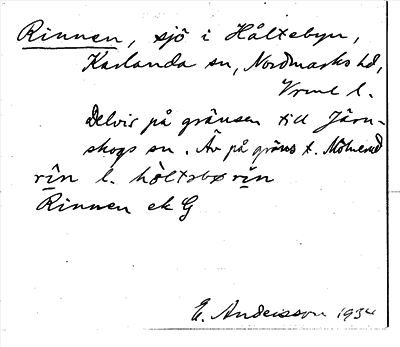 Rinnen, sjö i Håltebyn,
Karlanda sn, Nordmarks hd,
Vrml l.
Delvis på gränsen till Järn-
skogs sn. Äv på gräns t.
rîn l. hòltəbø rîn
Rinnen ek G
E. Andersson 1934